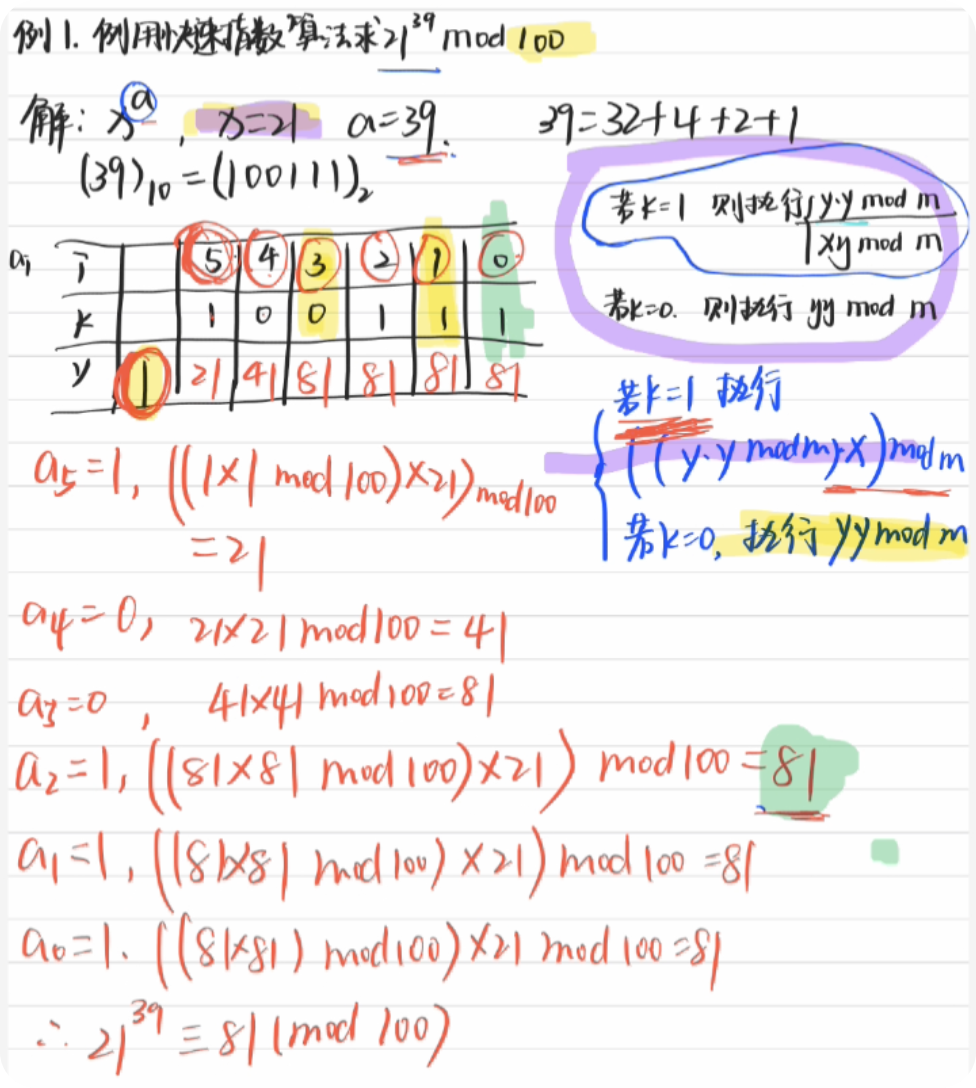 例1. 例用快速指数算法求21³⁹ mod 100
解: xᵃ, x=21 a=39. 39=32+4+2+1
(39)₁₀=(100111)₂
若K=1 则执行 y·y mod m
xy mod m
若K=0. 则执行 yy mod m
aᵢ i 5 4 3 2 1 0
K 1 0 0 1 1 1
y 1 21 41 81 81 81 81
若K=1 执行
((y·y mod m)·x) mod m
若K=0, 执行 yy mod m
a₅=1, ((1×1 mod 100)×21) mod 100
=21
a₄=0, 21×21 mod 100=41
a₃=0, 41×41 mod 100=81
a₂=1, ((81×81 mod 100)×21) mod 100=81
a₁=1, ((81×81 mod 100)×21) mod 100=81
a₀=1. ((81×81) mod 100)×21 mod 100=81
∴ 21³⁹≡81 (mod 100)